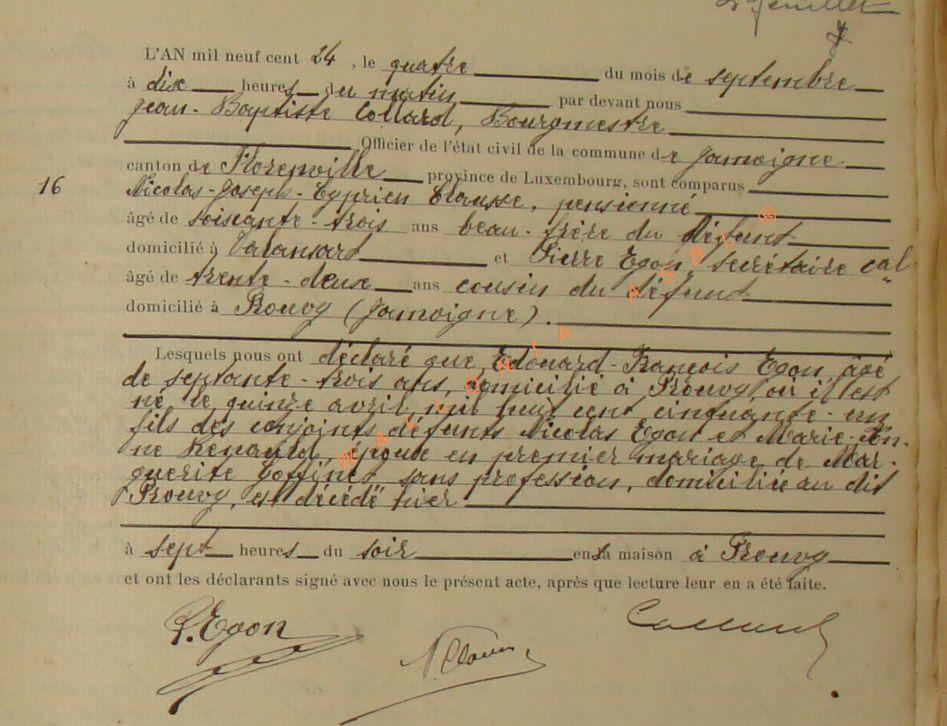 2e feuillet
L'AN mil neuf cent 24, le quatre du mois de septembre
à dix heures du matin par devant nous
Jean-Baptiste Collard, Bourgmestre
Officier de l'état civil de la commune de Jamoigne
canton de Florenville province de Luxembourg, sont comparus
16
Nicolas-Joseph-Cyprien Clausse, pensionné
âgé de soixante-trois ans beau-frère du défunt
domicilié à Valansart et Pierre Egon, secrétaire cal
âgé de trente-deux ans cousin du défunt
domicilié à Prouvy (Jamoigne).
Lesquels nous ont déclaré que, Edouard-François Egon, âgé
de septante-trois ans, domicilié à Prouvy, où il est
né, le quinze avril, mil huit cent cinquante-un
fils des conjoints défunts Nicolas Egon et Marie-An-
ne Renauld, époux en premier mariage de Mar-
guerite Goffinet, sans profession, domiciliée au dit
Prouvy, est décédé hier
à sept heures du soir en sa maison à Prouvy
et ont les déclarants signé avec nous le présent acte, après que lecture leur en a été faite.
P. Egon
N Clausse
Collard
WALLONIA ASBL ®